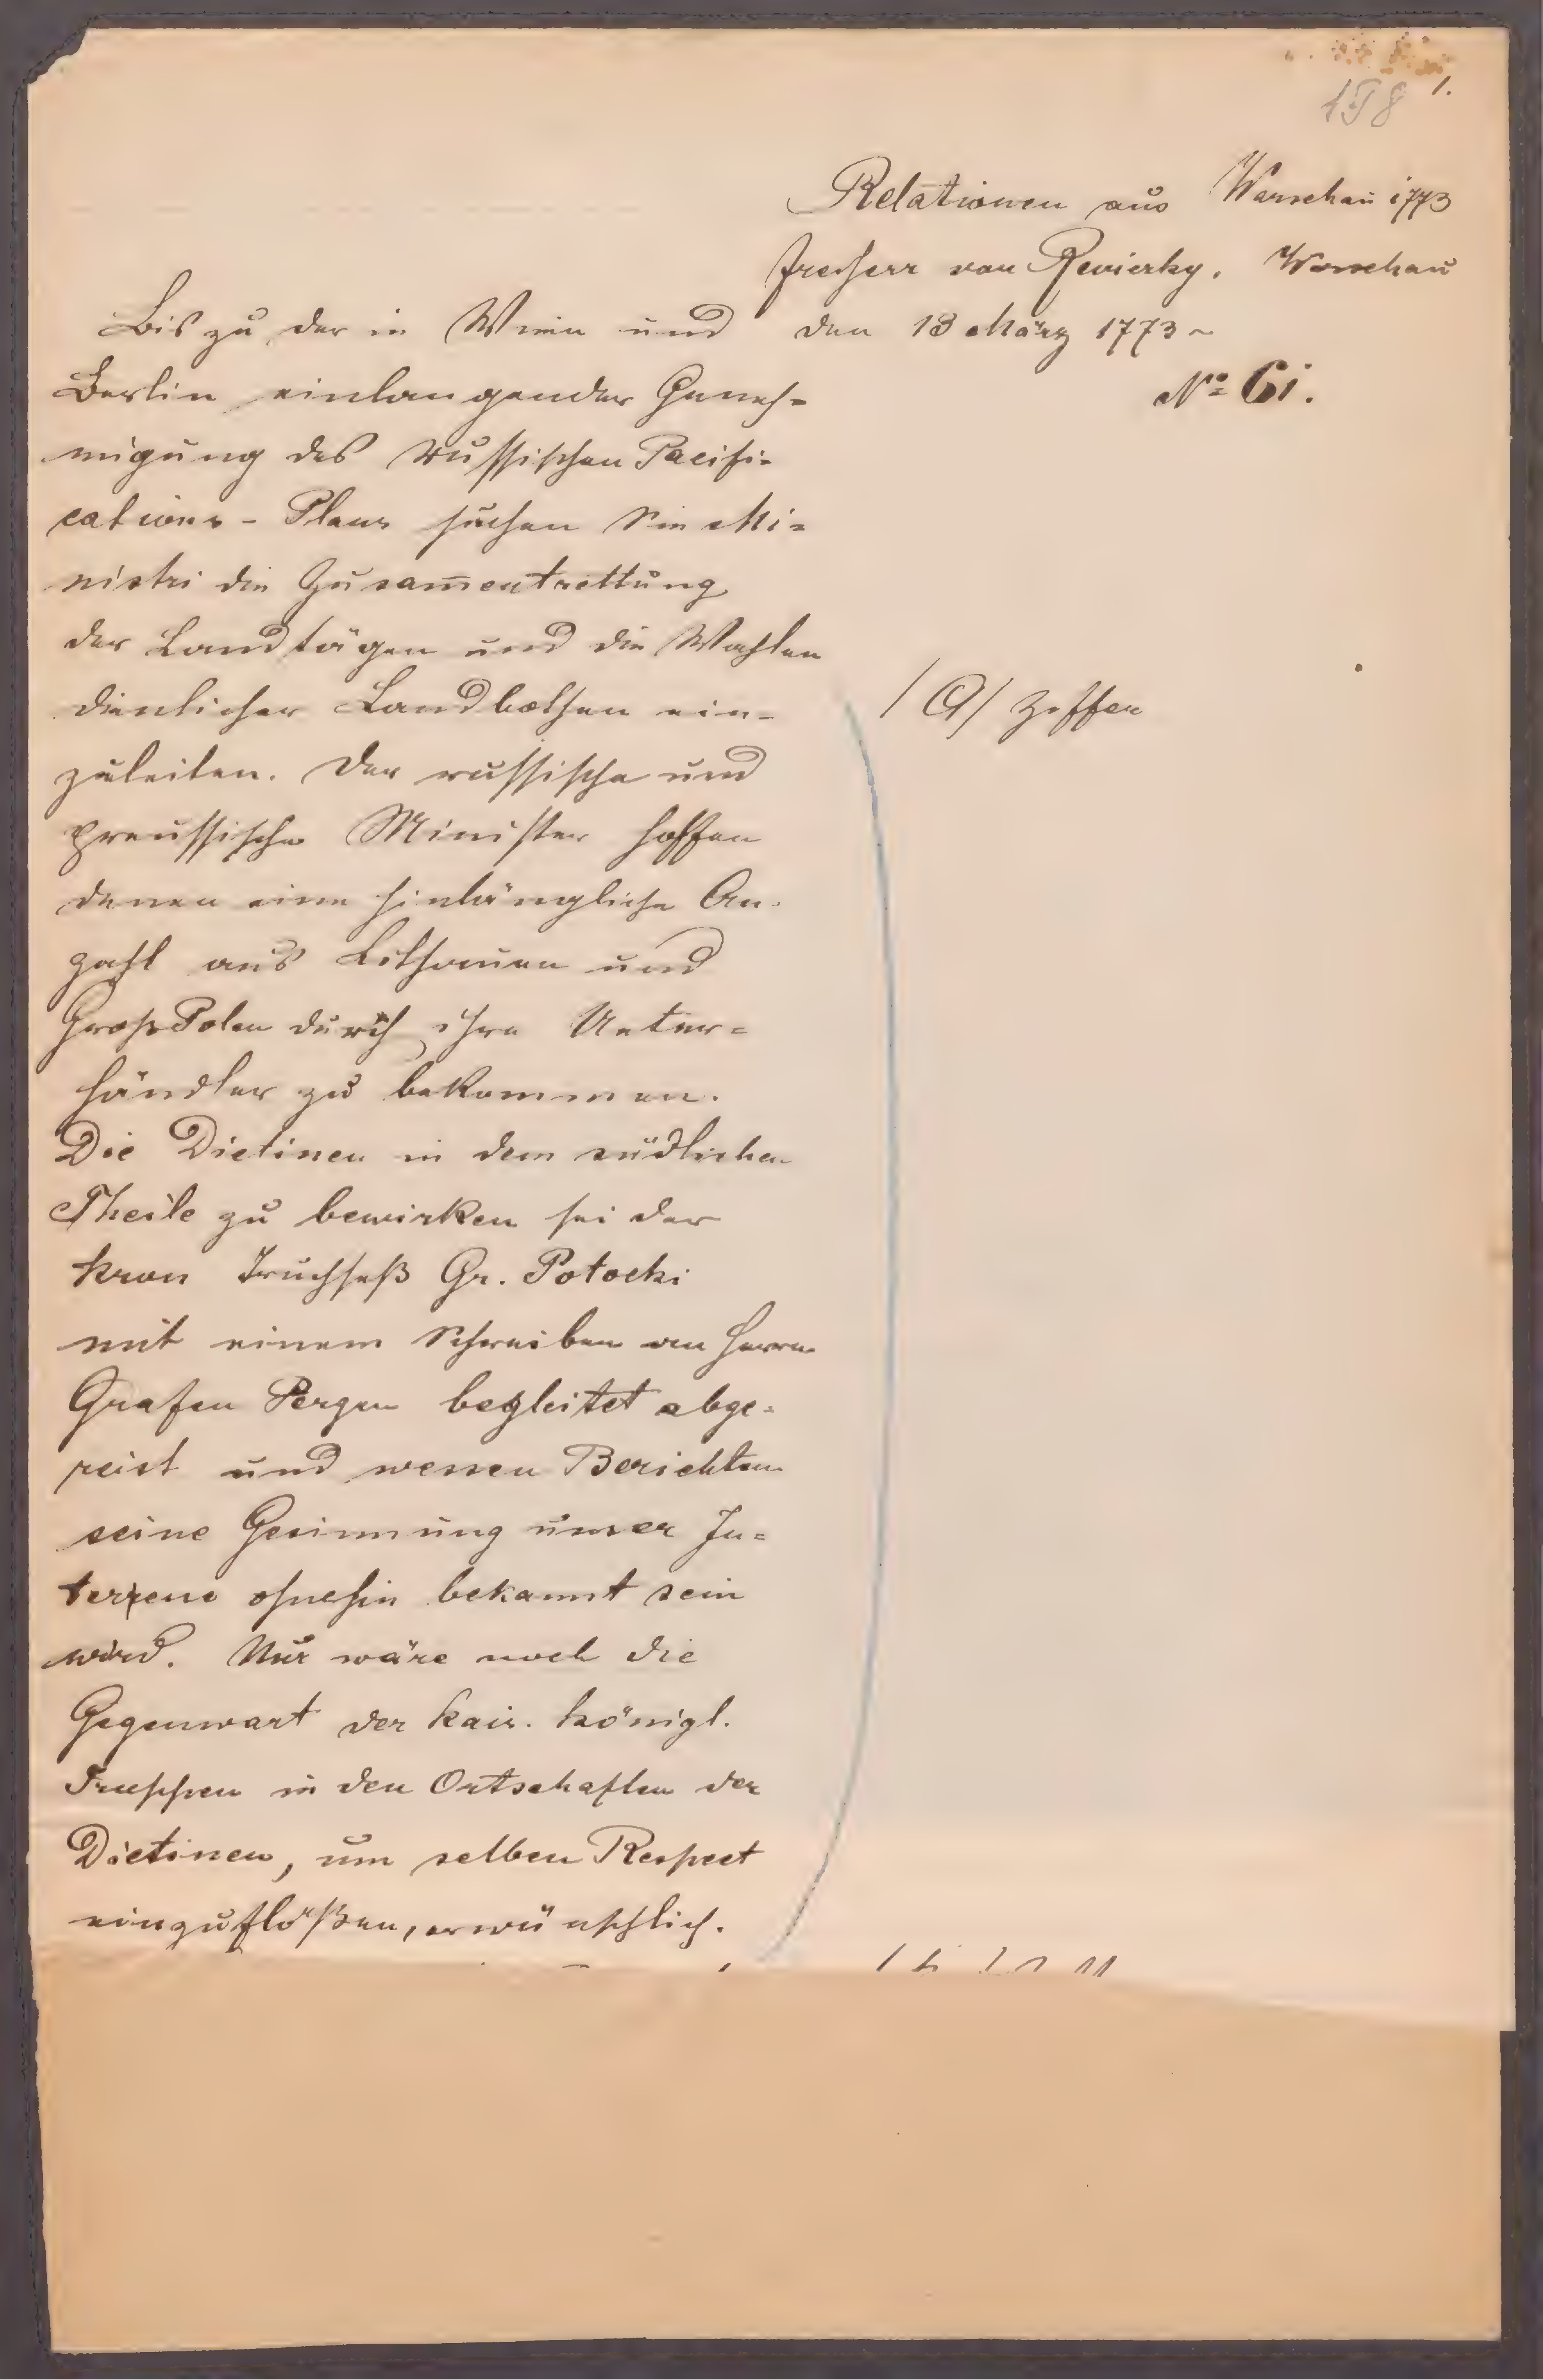 1.
198
Relationen aus Warschau 1773
Freiherr von Reviczky. Warschau
den 13 März 1773
No 61.
Bis zu der in Wien und
Berlin einlangender Geneh=
migung des Russischen Pacifi=
cations-Plans suchen die Mi=
nistri die Zusam̄entrettung
der Landtägen und die Wahlen
dienlicher Landbothen ein=
zuleiten. Der russische und
preussische Minister hoffen
denen eine hinlängliche An=
zahl aus Litthauen und
GroßPolen durch ihre Unter=
händler zu bekommen.
Die Dietinen in dem südlichen
Theile zu bewirken sei der
Kron Truchseß Gr. Potocki
mit einem Schreiben an Herrn
Grafen Pergen begleitet abge=
reist und wessen Berichten
seine Gesinnung unser In=
teresse ohnehin bekannt sein
wird. Nur wäre noch die
Gegenwart der kais. königl.
Truppen in den Ortschaften der
Dietinen, um selben Respect
einzuflößen, erwünschlich.
/ a / Ziffer